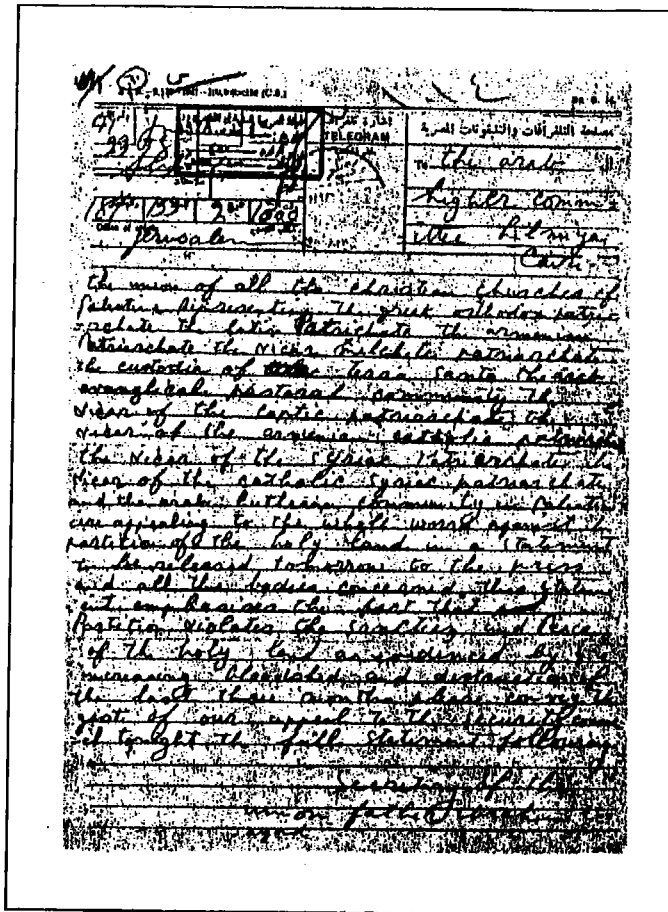 TELEGRAM
مصلحة التلغرافات والتليفونات المصرية
To the arab
higher Commi
ttee hilmya,
Cairo
Jerusalem
the union of all the christian churches of
Palestine representing the greek orthodox patri
rchate the latin Patriarchate the armenian
Patriarchate the vicar melchite patriarchate
the custodia of terra santa the arab
evanglical pastoral community the
vicar of the coptic patriarchate the
vicar of the armenian catholic patriarchate
the vicar of the Syriac Patriarchate the
vicar of the catholic Syriac patriarchate
and the arab Lutheran community in Palestine
are appealing to the whole world against the
partition of the holy land in a statement
to be released tomorrow to the press
and all the bodies concerned this statem
ent emphasises the fact that
Partition violates the Sanctity and Peace
of the holy land as evidenced by the
increasing bloodshed and destruction of
the last three months please convey the
gist of our appeal to the security coun
cil tonight the full statement following
Secretary of the
union father